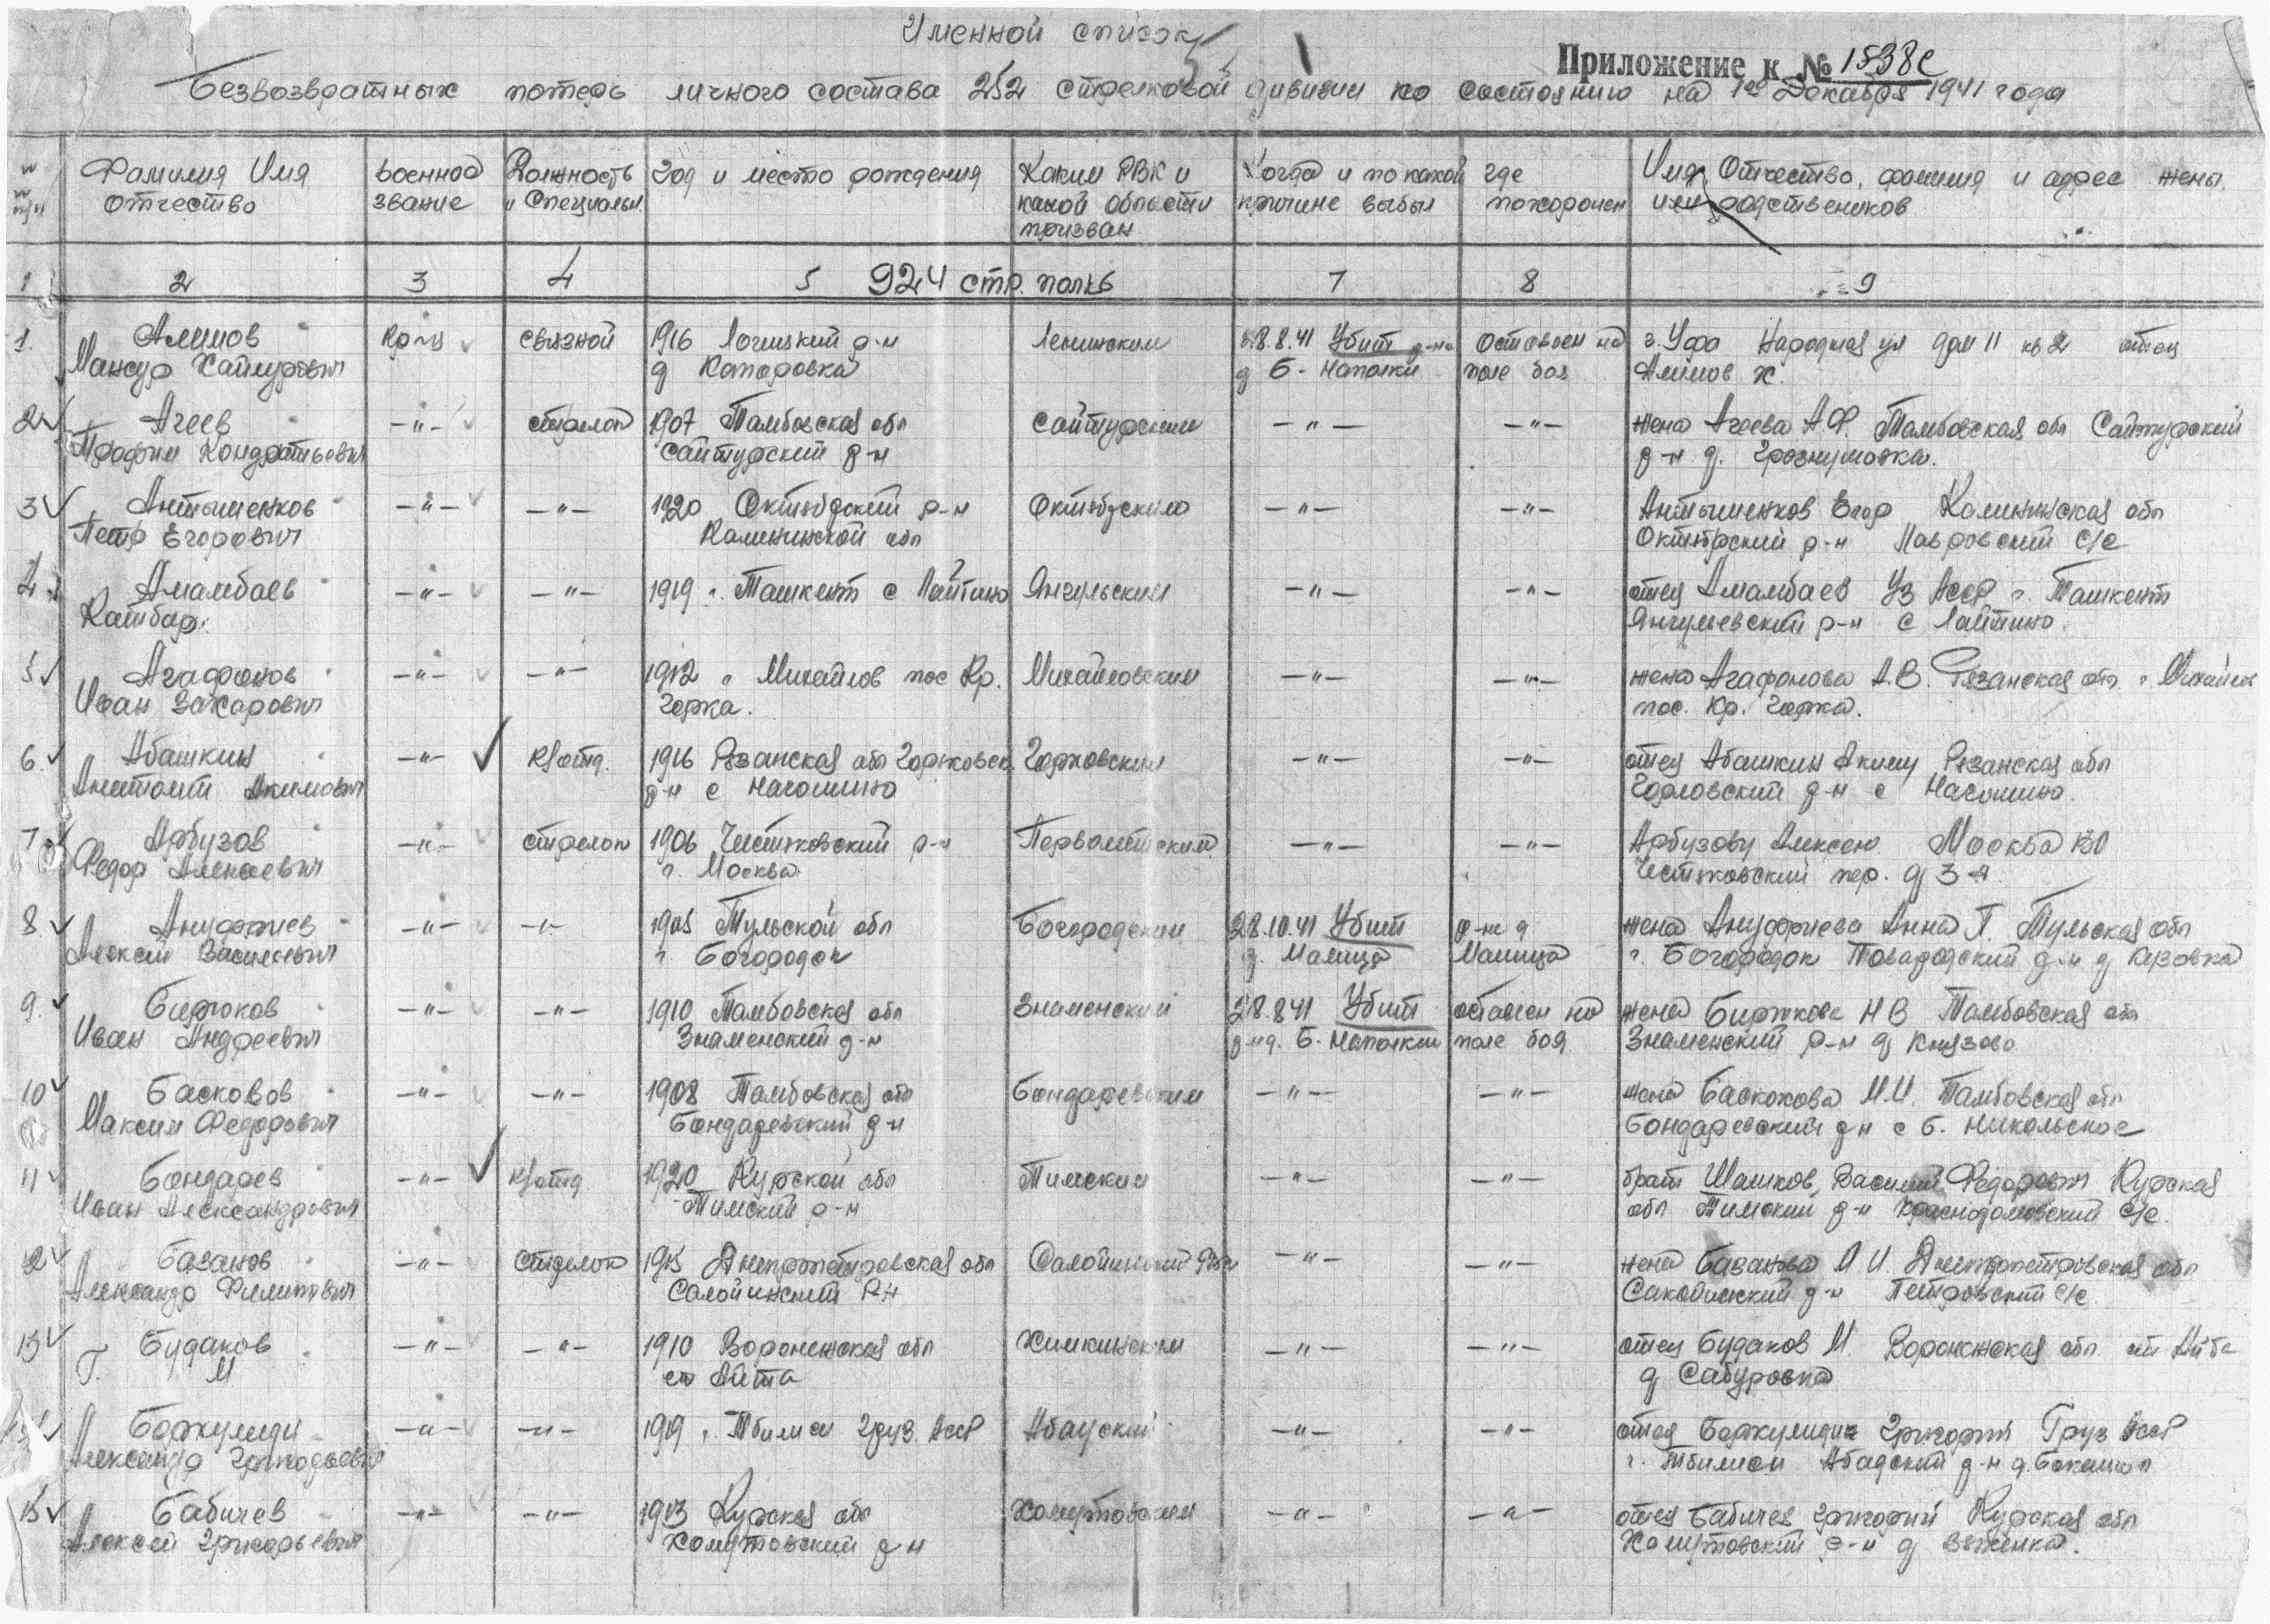 Именной список
Приложение к № 1538с
Безвозвратных потерь личного состава 252 стрелковой дивизии по состоянию на 1е Декабря 1941 года
Фамилия Имя Отчество
Военное звание
Должность и Специальн.
Год и место рождения
Каким РВК и какой области призван
Когда и по какой причине выбыл
где похоронен
Имя, Отчество, фамилия и адрес жены или родствеников
1 2 3 4 5 924 стр. полкъ 7 8 9
1. Алимов кр-ц связной 1916 р-н Ленинским 28.8.41 Убит р-не оставлен на г. Уфа Народная ул дом 11 кв 2 отец
Мансур д Б. Наполки поле боя Алимов Х.
2 Агеев —"— стрелок 1907 Тамбовская обл —"— —"— жена Агеева А.Ф. Тамбовская обл
Трофим Кондратьевич р-н р-н д.
3 Антышенков —"— —"— 1920 Октябрский р-н Октябрским —"— —"— Антышенков Егор Калининская обл
Петр Егорович Калининской обл Октябрский р-н Лавровский с/с
4 Амамбаев —"— —"— 1919 г. Ташкент с Янгульским —"— —"— отец Амамбаев Уз АССР г. Ташкент
р-н с
5 Агафонов —"— —"— 1912 г Михайлов пос Кр. Михайловским —"— —"— жена Агафонова А.В. Рязанская обл. г Михайлов
Иван Захарович Горка. пос. Кр. Горка.
6. Абашкин —"— к/отд. 1916 Рязанская обл Горловским —"— —"— отец Абашкин Аким Рязанская обл
Анатолий Акимович р-н с Горловский р-н с
7 Арбузов —"— стрелок 1906 р-н —"— —"— Арбузову Алексею Москва
Федор Алексеевич г. Москва пер. д 3
8 Ануфриев —"— —"— 1905 Тульской обл Богородским 28.10.41 Убит р-не д жена Ануфриева Анна П. Тульская обл
Алексей Васильевич г. Богородск д. Малица Малица г. Богородск р-н д
9. Бирюков —"— —"— 1910 Тамбовская обл Знаменский 28.8.41 Убит оставлен на жена Бирюкова Н В Тамбовская обл
Иван Андреевич Знаменский р-н р-н д. Б. Наполки поле боя Знаменский р-н д Князево
10 Басковов —"— —"— 1908 Тамбовская обл Бондаревским —"— —"— жена М.И. Тамбовская обл
Максим Федорович Бондаревский р-н Бондаревский р-н с Б. Никольское
11 Бондарев —"— к/отд 1920 Курской обл Тимским —"— —"— брат Шашков Василий Федорович Курская
Иван Александрович Тимский р-н обл Тимский р-н с/с
12 Базанов —"— стрелок Днепропетровская обл —"— —"— жена Базанова И. Днепропетровская обл
Александр Филиппович р-н Петровский с/с
13 Будаков —"— —"— 1910 Воронежская обл Химкинским —"— —"— отец Будаков М. Воронежская обл.
Г. М д Сабуровка
—"— —"— 1919 г. Тбилиси Груз. АССР —"— —"— отец Григорий Груз АССР
Александр Григорьевич г. Тбилиси р-н д.
15 Бабичев —"— —"— 1913 Курская обл Хомутовским —"— —"— отец Бабичев Григорий Курская обл
Алексей Григорьевич Хомутовский р-н Хомутовский р-н д